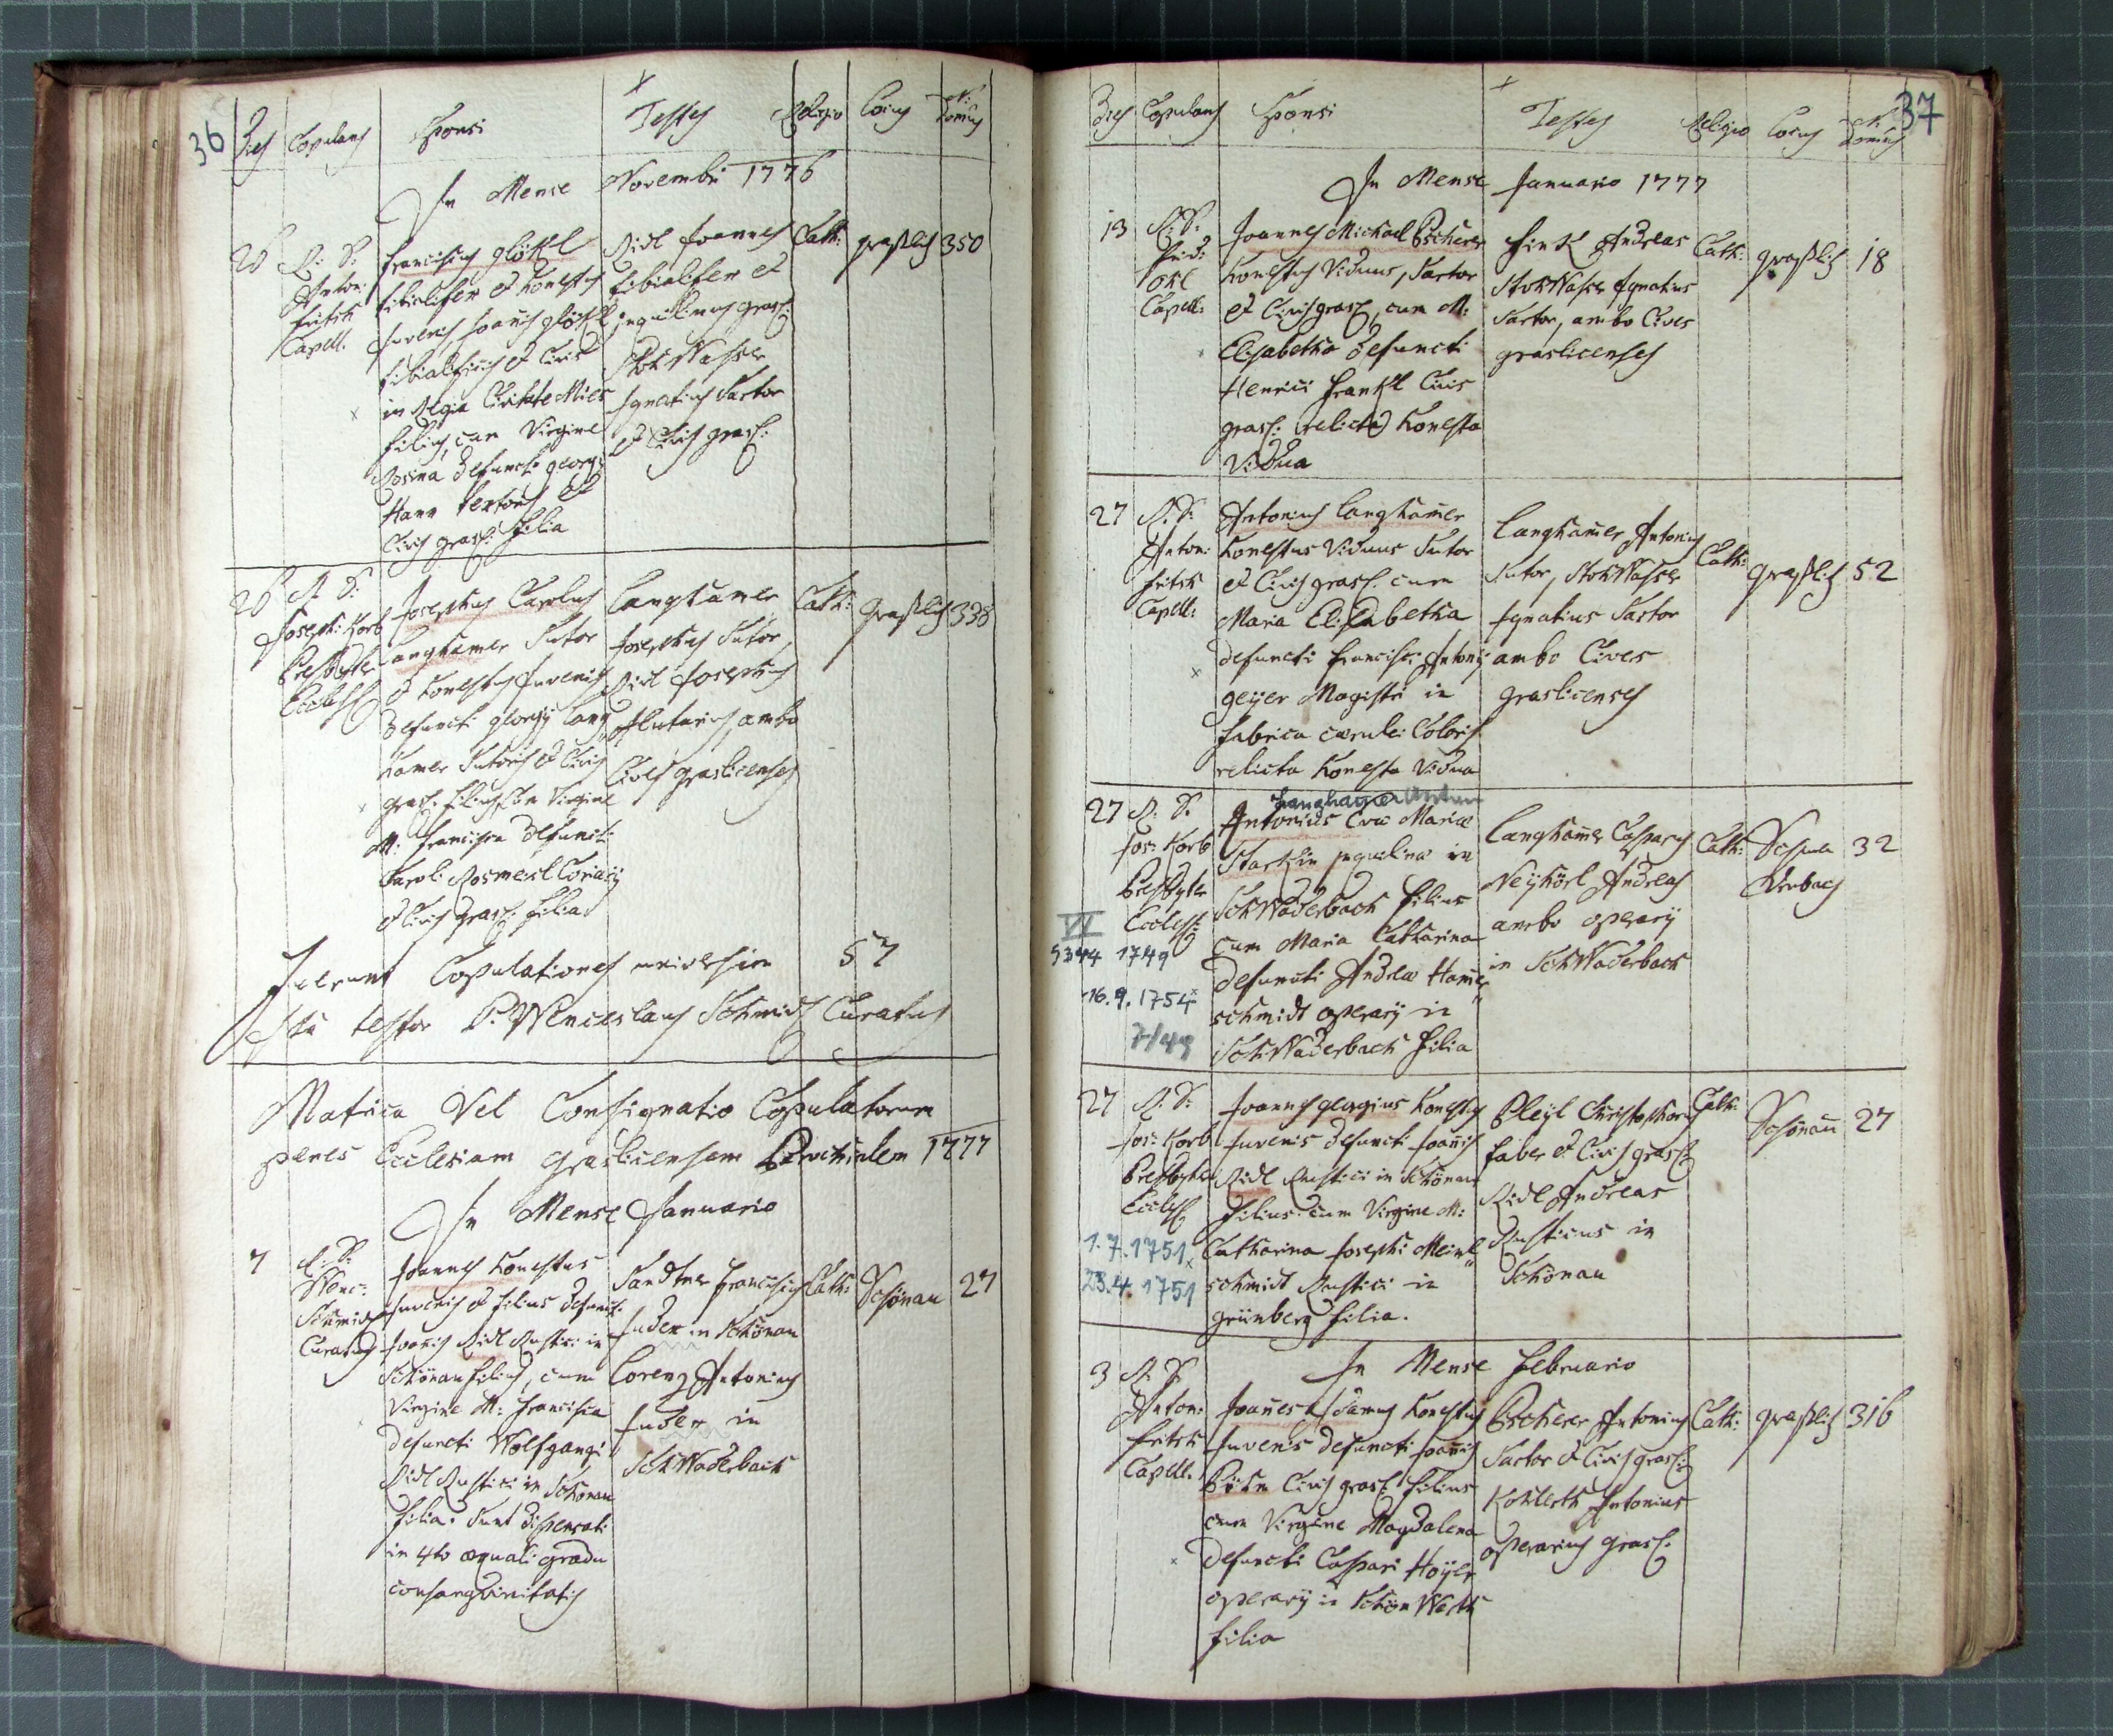 36
Dies Copulans Sponsi Testes Religio Locus N: Domus
In Mense Novembri 1776
26
R: D:
Anton:
Fritsch
Capell.
Franciscus Glößl
et honestus
Juvenis Joañis Glößl
et Civis
in Regia Civitate Mies
filius, cum Virgine
Rosina defuncti Georgij
Hann Textoris et
Civis grasl: filia
Ridl Joannes
et
inquilinus grasl:
Stokwasser
Ignatius Sartor
et Civis grasl:
Cath:
graßlitz
350
26
R: D:
Joseph: Korb
Presbyter
Eccles:
Josephus Carolus
Langhamer Sutor
et honestus Juvenis
defuncti Georgij Lang
hamer Sutoris et Civis
grasl: filius, cum Virgine
M: Francisca defuncti
Caroli Rosmeisl Coriarij
et Civis grasl: filia
Langhamer
Josephus Sutor,
Ridl Josephus
ambo
Cives graslicenses
Cath:
Graßlitz
338
Fuerunt Copulationes universim 57
Ita testor P: Wenceslaus Schmidt Curatus
Matrica Vel Consignatio Copulatorum
penes Ecclesiam Graslicensem Parochialem 1777
In Mense Januario
7
R: D:
Wenc:
Schmidt
Curatus
Joannes honestus
Juvenis et filius defuncti
Joañis Ridl Rustici in
Schönau filius, cum
Virgine M: Francisca
defuncti Wolfgangi
Ridl Rustici in Schönau
filia. Sunt dispensati
in 4to æquali gradu
consanguinitatis
Sandtner Franciscus
Judex in Schönau
Lorenz Antonius
Judex in
Schwaderbach
Cath:
Schönau
27
37
Dies Copulans Sponsi Testes Religio Locus N: Domus
In Mense Januario 1777
13
R: D:
Capell:
Joannes Michael Pscherer
honestus Viduus, Sartor
et Civis grasl, cum M:
Elisabetha defuncti
Henrici Frankl Civis
grasl: relicta honesta
Vidua
Andreas
Stokwasser Ignatius
Sartor, ambo Cives
graslicenses
Cath:
graßlitz
18
27
R: D:
Anton:
Fritsch
Capell:
Antonius Langhamer
honestus Viduus Sutor
et Civis grasl. cum
Maria Elisabetha
defuncti Francisci Antonij
Geÿer Magistri in
fabrica cærulei Coloris
relicta honesta Vidua
Langhamer Antonius
Sutor, Stokwasser
Ignatius Sartor
ambo Cives
graslicenses
Cath:
graßlitz
52
27
R: D.
Jos: Korb
Presbyter
Eccles:
VI
5344 1749
16.9.1754
7/49
Langhamer Anton
Antonius Evæ Mariæ
Starklin inquilinæ in
Schwaderbach filius
cum Maria Catharina
defuncti Andreæ Hamer
schmidt operarij in
Schwaderbach filia
Langhamer Casparus
Neÿkörl Andreas
ambo operarij
in Schwaderbach
Cath:
Schwa
derbach
32
27
R: D:
Jos: Korb
Presbyter
Eccles
1.7.1751
23.4.1751
Joannes Georgius honestus
Juvenis defuncti Joañis
Ridl Rustici in Schönau
filius cum Virgine M:
Catharina Josephi Meinl
schmidt Rustici in
Grünberg filia.
Pleÿl Christophorus
faber et Civis grasl:
Ridl Andreas
Rusticus in
Schönau
Cath:
Schönau
27
In Mense Februario
3
R: D:
Anton:
Fritsch
Capell.
Joannes Adamus honestus
Juvenis defuncti Joañis
Böhm Civis grasl: filius
cum Virgine Magdalena
defuncti Caspari Hoÿer
operarij in Schön Werth
filia
Pscherer Antonius
Sartor et Civis grasl:
Kohlerth Antonius
operarius grasl:
Cath:
graßlitz
316